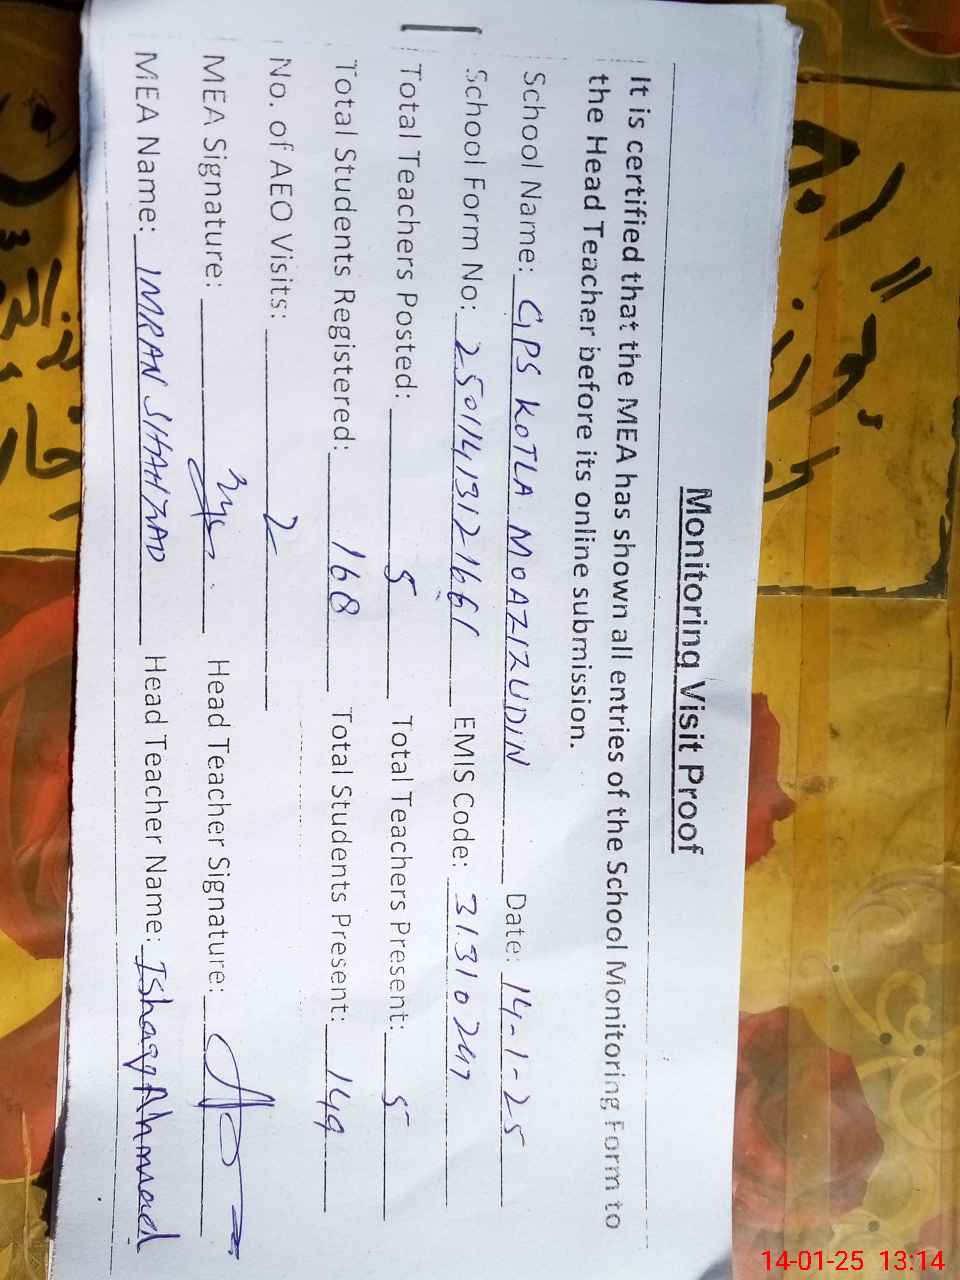 Monitoring Visit Proof
It is certified that the MEA has shown all entries of the School Monitoring Form to
the Head Teacher before its online submission.
School Name: GPS KOTLA MOAZIZUDIN Date: 14-1-25
School Form No: 25011413121661 EMIS Code: 31310247
Total Teachers Posted: 5 Total Teachers Present: 5
Total Students Registered: 168 Total Students Present: 149
No. of AEO Visits: 2
MEA Signature: Head Teacher Signature:
MEA Name: IMRAN SHAHZAD Head Teacher Name: Ishaqq Ahmad
14-01-25 13:14